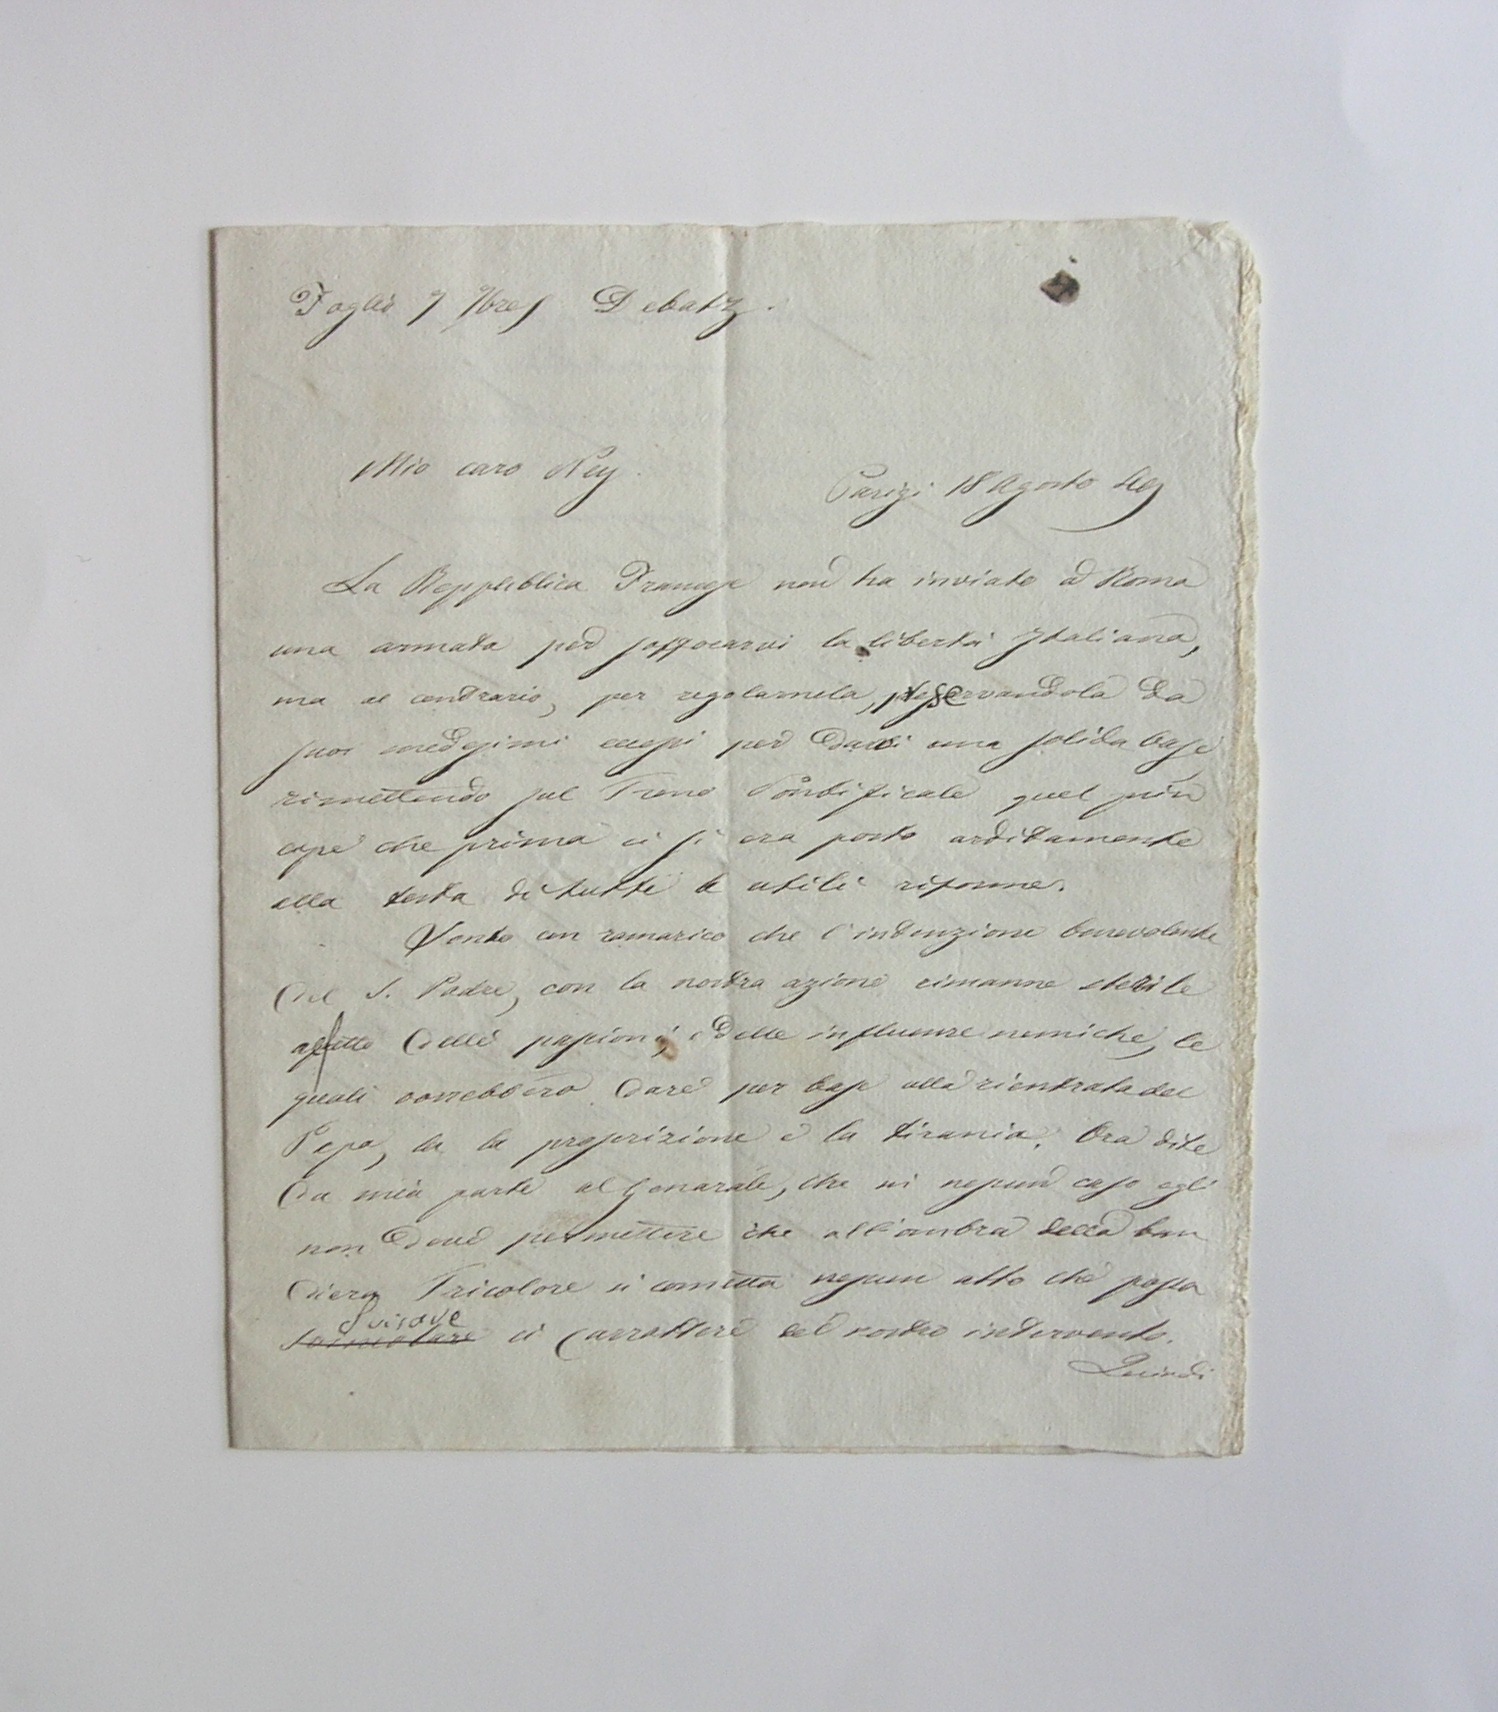 Foglio 7 7bre Debatz.
Mio caro Ney.
Parigi 18 Agosto 49
La Reppubblica Francese non ha inviato a Roma
una armata per soffocarvi la libertà Italiana,
ma al contrario, per regolarnela, preservandola da
suoi medesimi eccessi per darci una solida base
rimettendo sul Trono Pontificale quel prin
cipe che prima ci si era posto arditamente
alla testa di tutte le utili riforme.
Sento con ramarico che l'intenzione benevolente
del S. Padre, con la nostra azione rimanne sterile
affetto delle passioni, e delle influenze nemiche, le
quali vorrebbero dare per base alla rientrata del
Papa, la proscrizione e la tirania. Ora dite
da mia parte al Generale, che in nessun caso egli
non deve permettere che all'ombra della ban
diera Tricolore si cometta nessun atto che possa
Svisare
il carrattere del nostro intervento.
Quindi